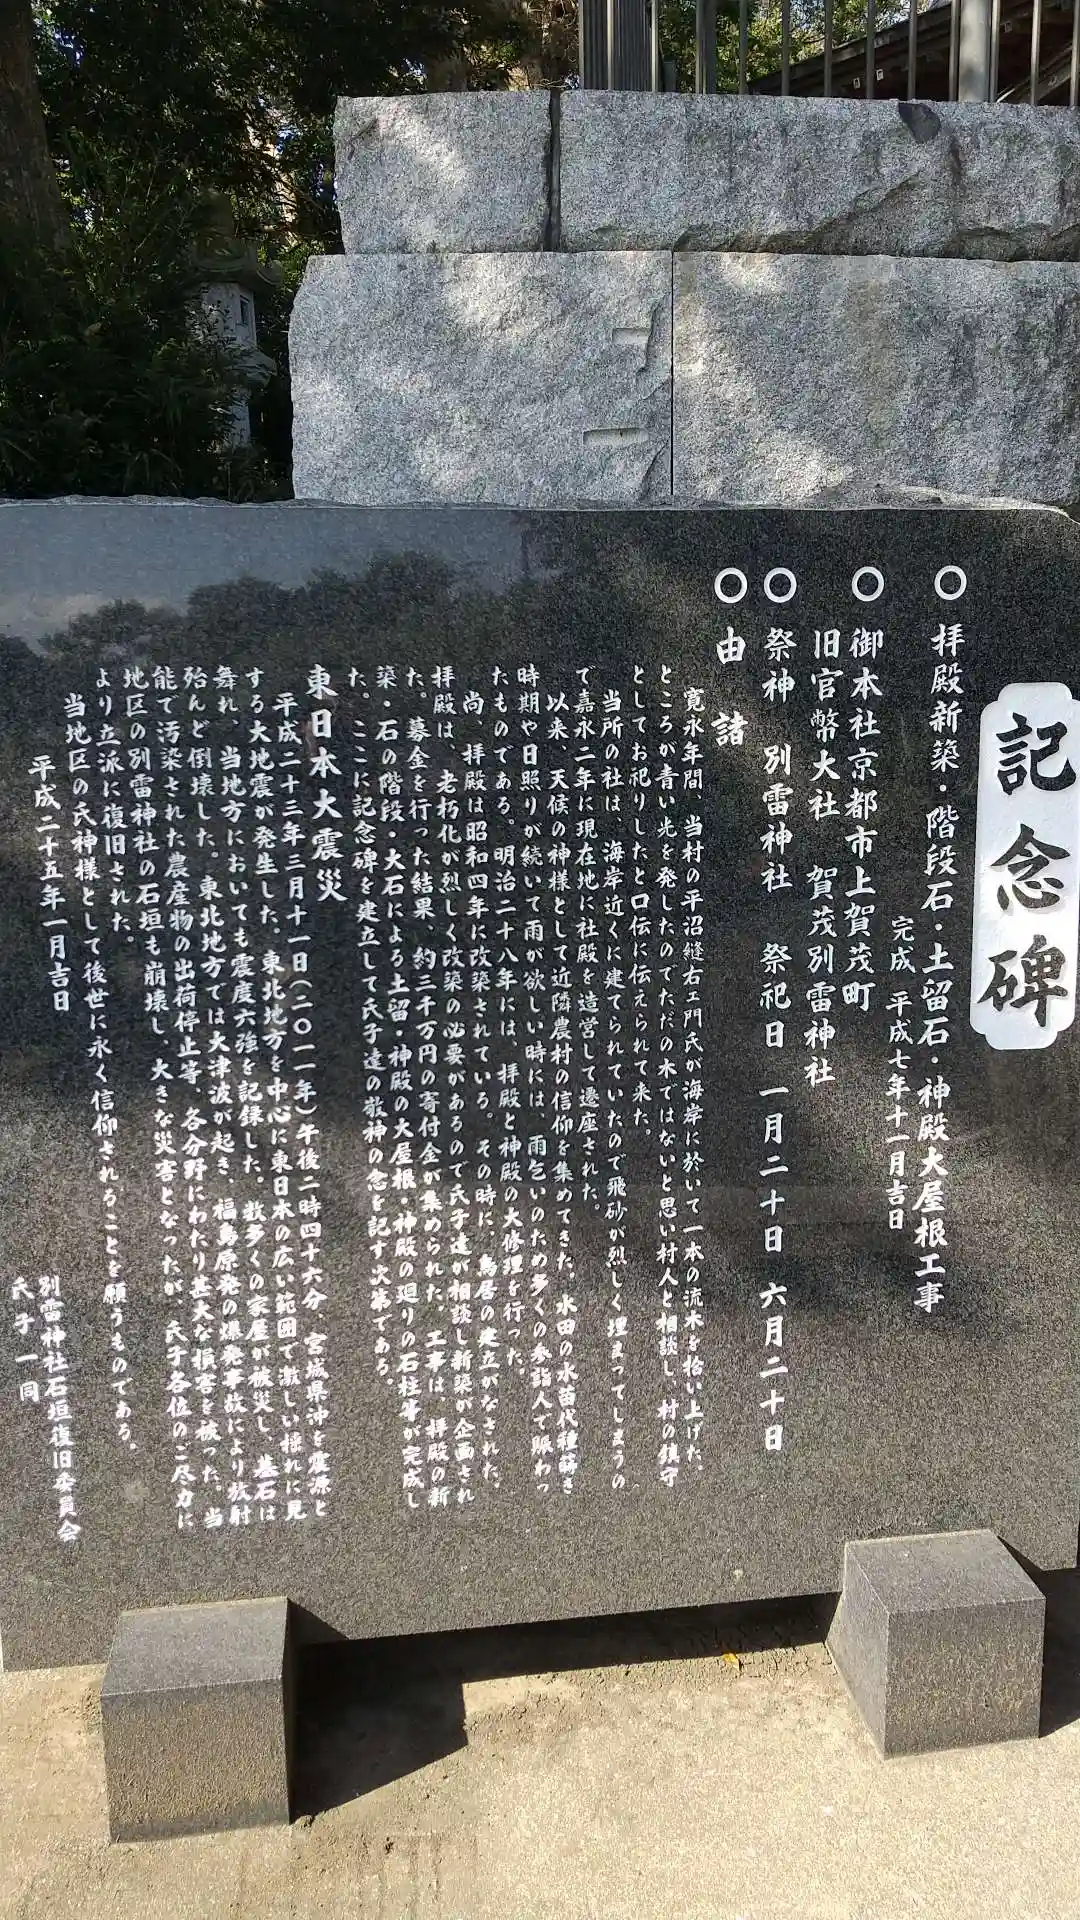 記念碑
○ 拝殿新築・階段石・土留石・神殿大屋根工事
完成 平成七年十一月吉日
○ 御本社京都市上賀茂町
旧官幣大社 賀茂別雷神社
○ 祭神 別雷神社 祭祀日 一月二十日 六月二十日
○ 由諸
寛永年間、当村の平沼縫右ェ門氏が海岸に於いて一本の流木を拾い上げた、
ところが青い光を発したのでただの木ではないと思い村人と相談し、村の鎮守
としてお祀りしたと口伝に伝えられて来た。
当所の社は、海岸近くに建てられていたので飛砂が烈しく埋まってしまうの
で嘉永二年に現在地に社殿を造営して遷座された。
以来、天候の神様として近隣農村の信仰を集めてきた。水田の水苗代種蒔き
時期や日照りが続いて雨が欲しい時には、雨乞いのため多くの参詣人で賑わっ
たものである。明治二十八年には、拝殿と神殿の大修理を行った。
尚、拝殿は昭和四年に改築されている。その時に、鳥居の建立がなされた。
拝殿は、老朽化が烈しく改築の必要があるので氏子達が相談し新築が企画され
た。募金を行った結果、約三千万円の寄付金が集められた。工事は、拝殿の新
築・石の階段・大石による土留・神殿の大屋根・神殿の廻りの石柱等が完成し
た。ここに記念碑を建立して氏子達の敬神の念を記す次第である。
東日本大震災
平成二十三年三月十一日(二〇一一年)午後二時四十六分、宮城県沖を震源と
する大地震が発生した、東北地方を中心に東日本の広い範囲で激しい揺れに見
舞れ、当地方においても震度六強を記録した。数多くの家屋が被災し、墓石は
殆んど倒壊した。東北地方では大津波が起き、福島原発の爆発事故により放射
能で汚染された農産物の出荷停止等、各分野にわたり甚大な損害を被った。当
地区の別雷神社の石垣も崩壊し、大きな災害となったが、氏子各位のご尽力に
より立派に復旧された。
当地区の氏神様として後世に永く信仰されることを願うものである。
平成二十五年一月吉日
別雷神社石垣復旧委員会
氏子一同